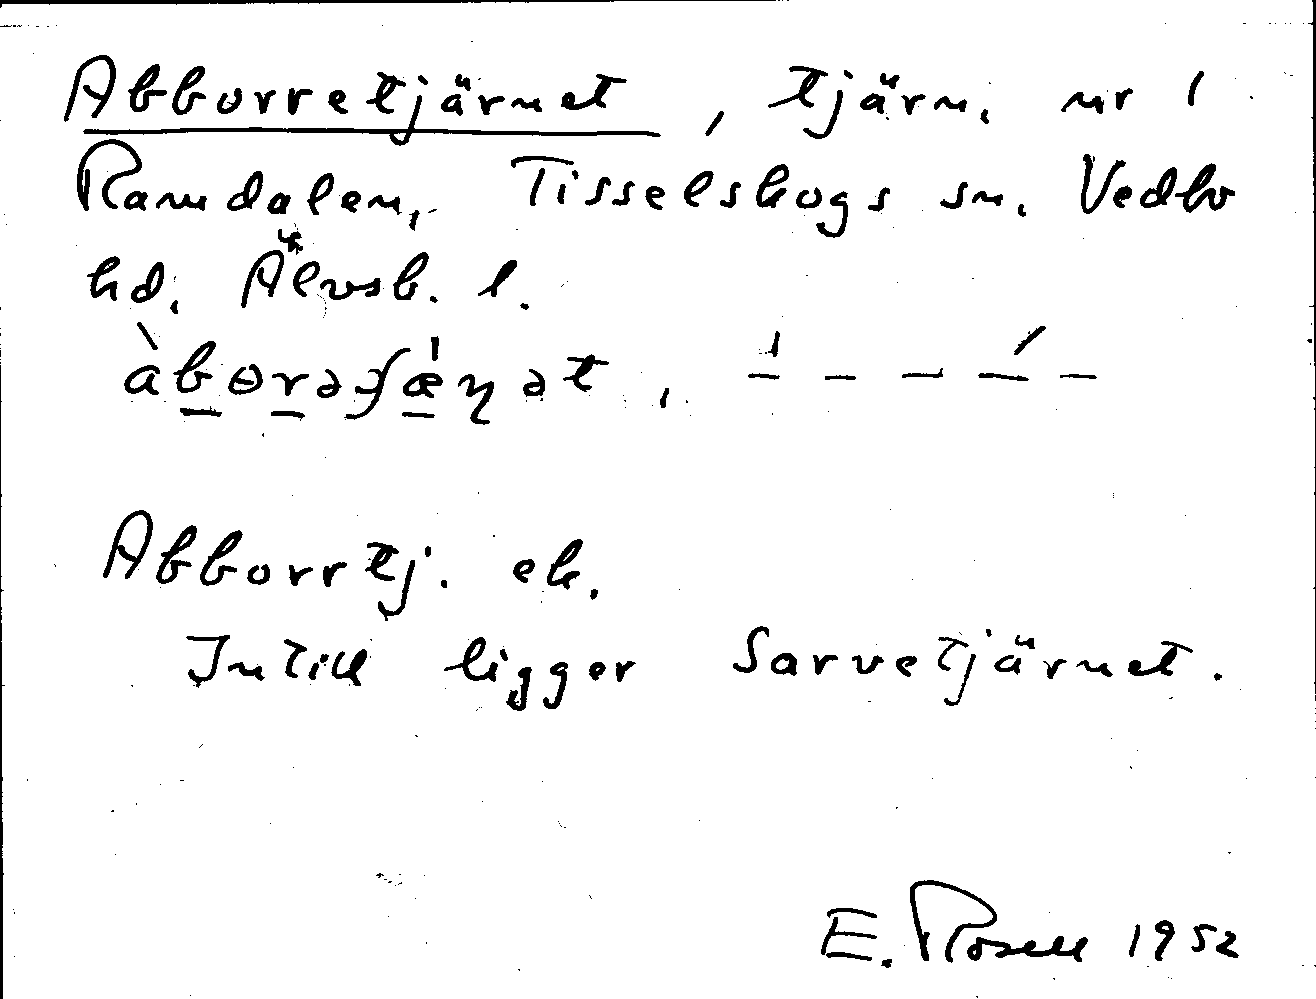 Abborretjärnet, tjärn. nr 1
Ramdalen, Tisselskogs sn. Vedbo
hd. Älvsb. l.
Abborrtj. ek.
Intill ligger Sarvetjärnet.
E. Rosell 1952